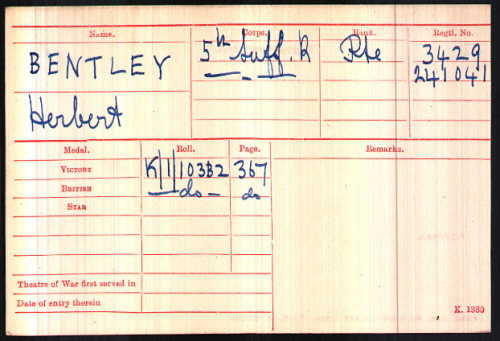 Name. Corps. Rank. Regtl. No.
BENTLEY 5th Suff. R Pte 3429
241041
Herbert
Medal. Roll. Page. Remarks.
VICTORY K|1|103B2 367
BRITISH —do— do
STAR
Theatre of War first served in
Date of entry therein
K. 1380